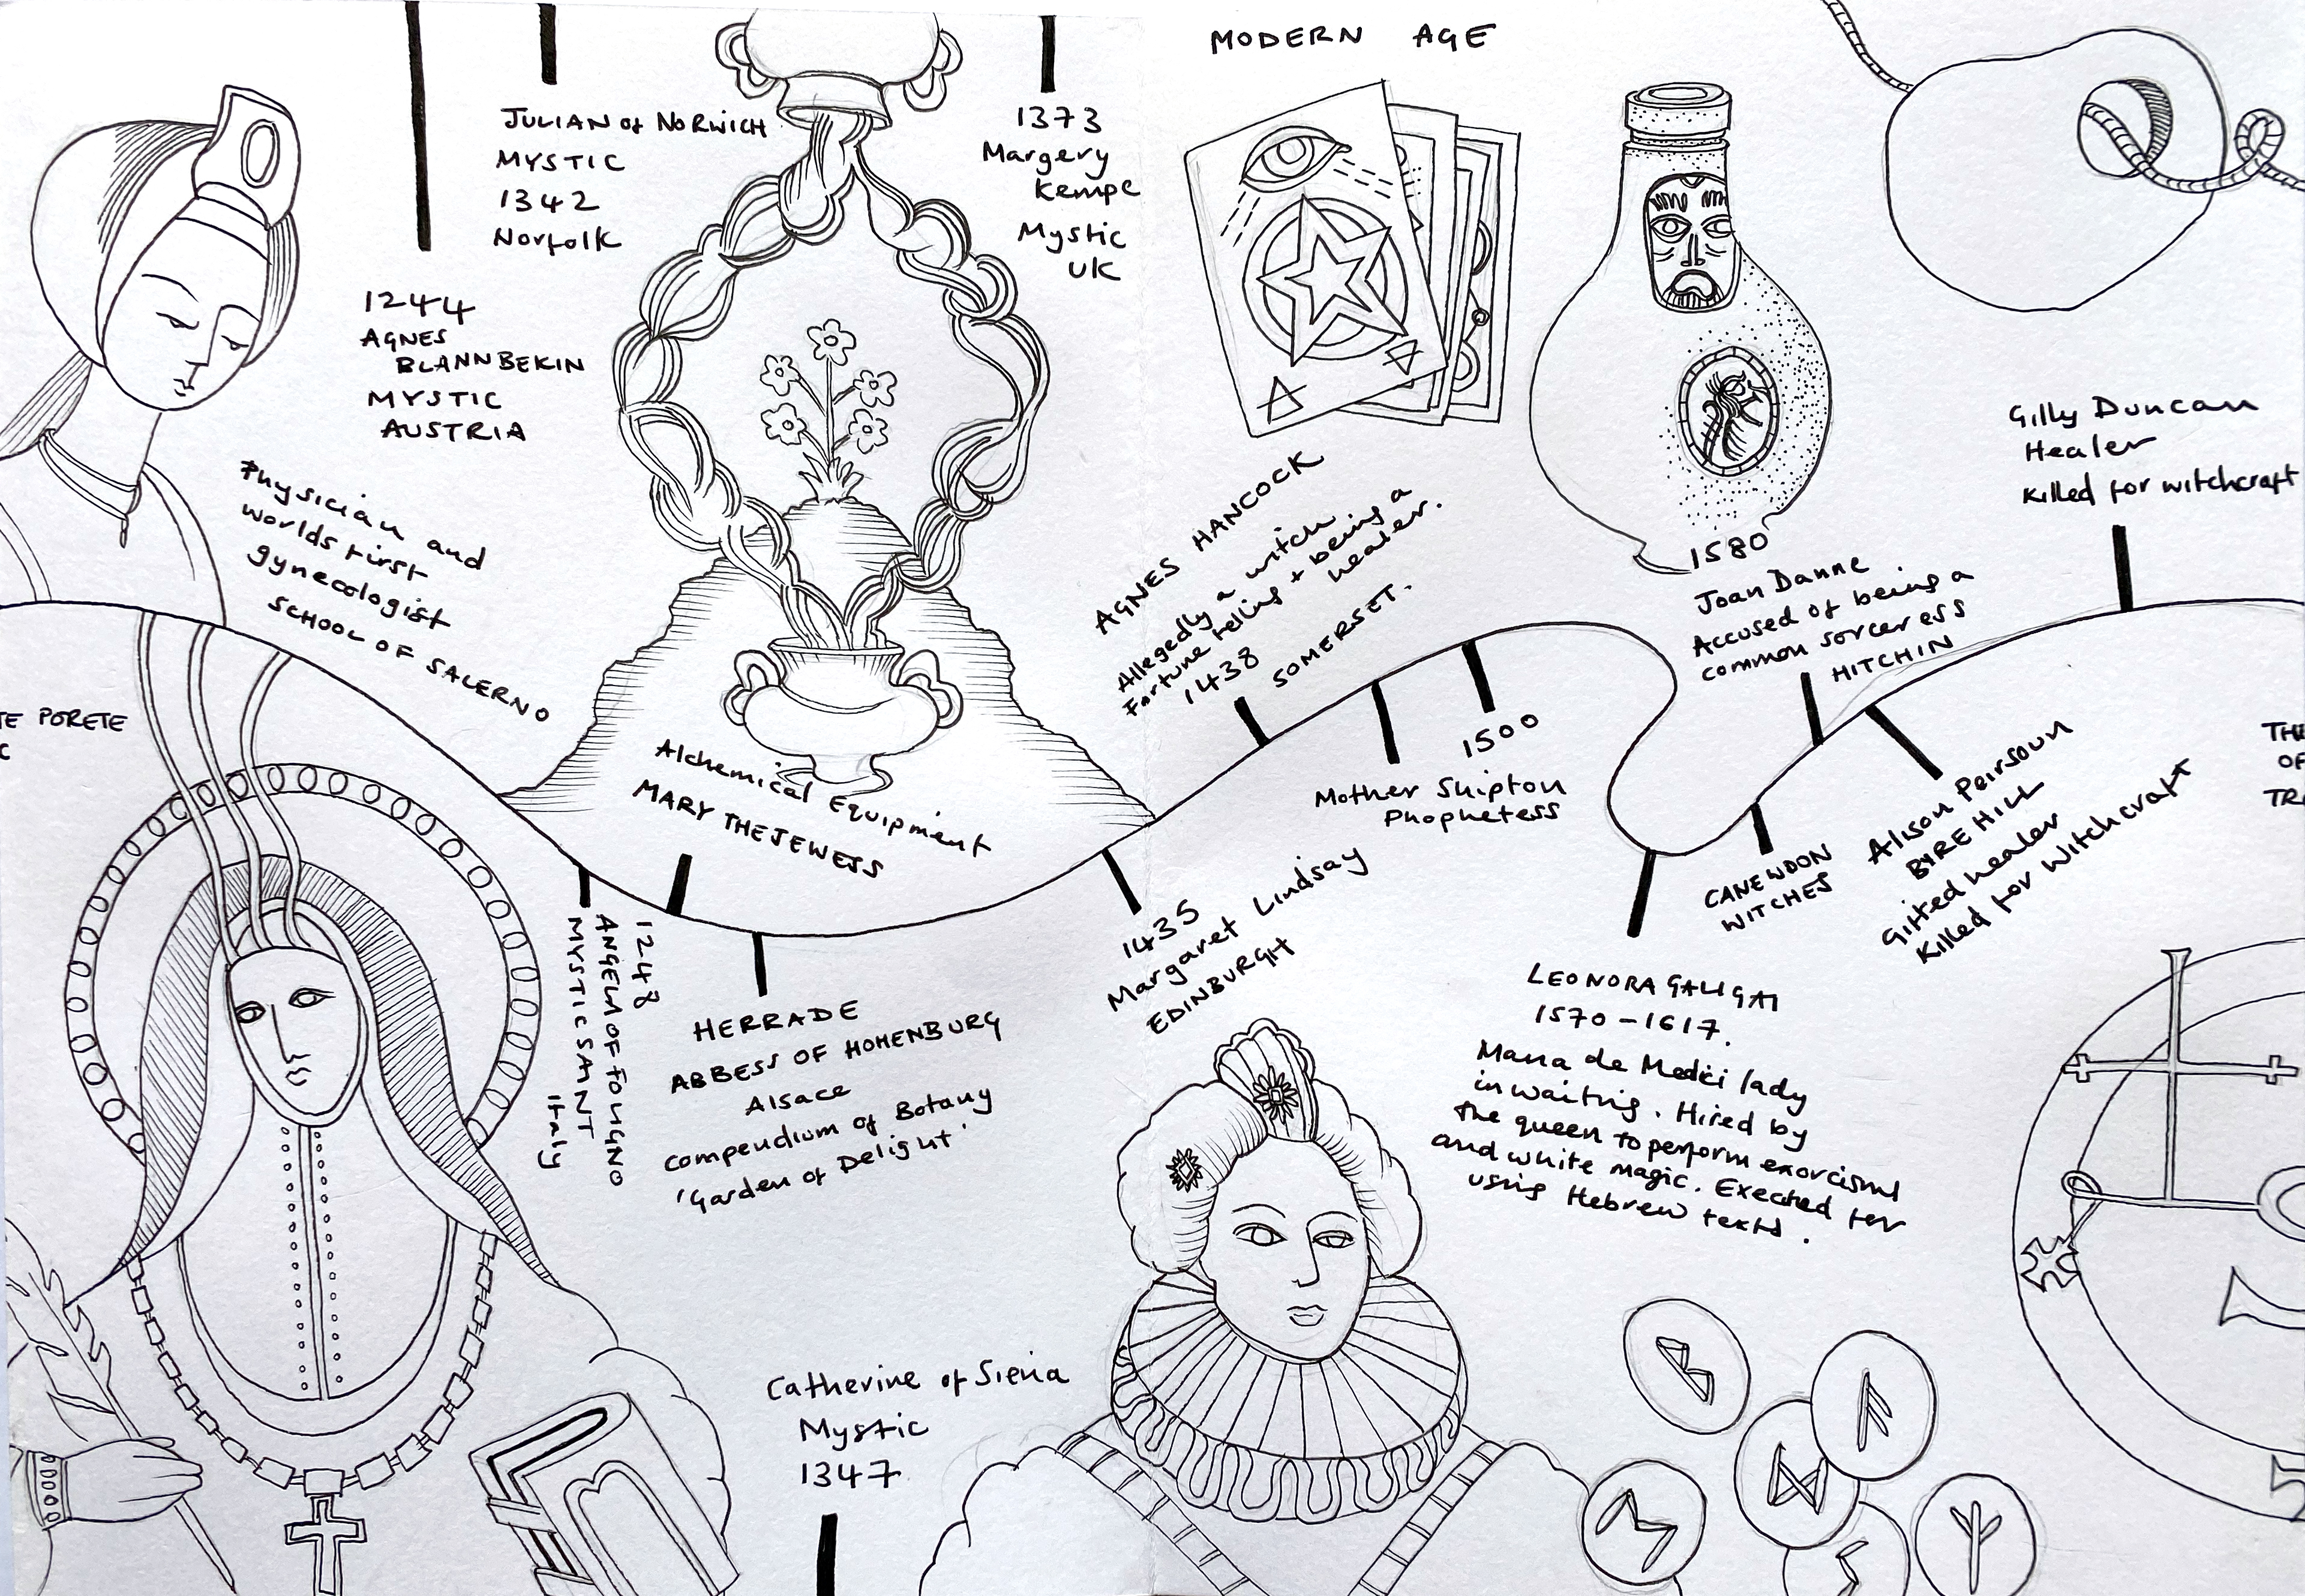 MODERN AGE
JULIAN of NORWICH
MYSTIC
1342
Norfolk
1373
Margery
Kempe
Mystic
UK
1244
AGNES
BLANNBEKIN
MYSTIC
AUSTRIA
Physician and
worlds first
gynecologist
SCHOOL OF SALERNO
TE PORETE
C
Alchemical Equipment
MARY THE JEWESS
AGNES HANCOCK
Allegedly a witch
Fortune telling + being a
healer.
1438
SOMERSET.
1580
Joan Danne
Accused of being a
common sorceress
HITCHIN
Gilly Duncan
Healer
Killed for witchcraft
1500
Mother Shipton
Prophetess
CANEWDON
WITCHES
Alison Peirsoun
BYRE HILL
Gifted healer
Killed for witchcraft
THE
OF
TR
1248
ANGELA OF FOLIGNO
MYSTIC SAINT
Italy
HERRADE
ABBESS OF HOHENBURG
Alsace
compendium of Botany
'Garden of Delight'
1435
Margaret Lindsay
EDINBURGH
LEONORA GALIGAI
1570 - 1617.
Maria de Medici lady
in waiting. Hired by
the queen to perform exorcisms
and white magic. Exected for
using Hebrew texts.
Catherine of Siena
Mystic
1347